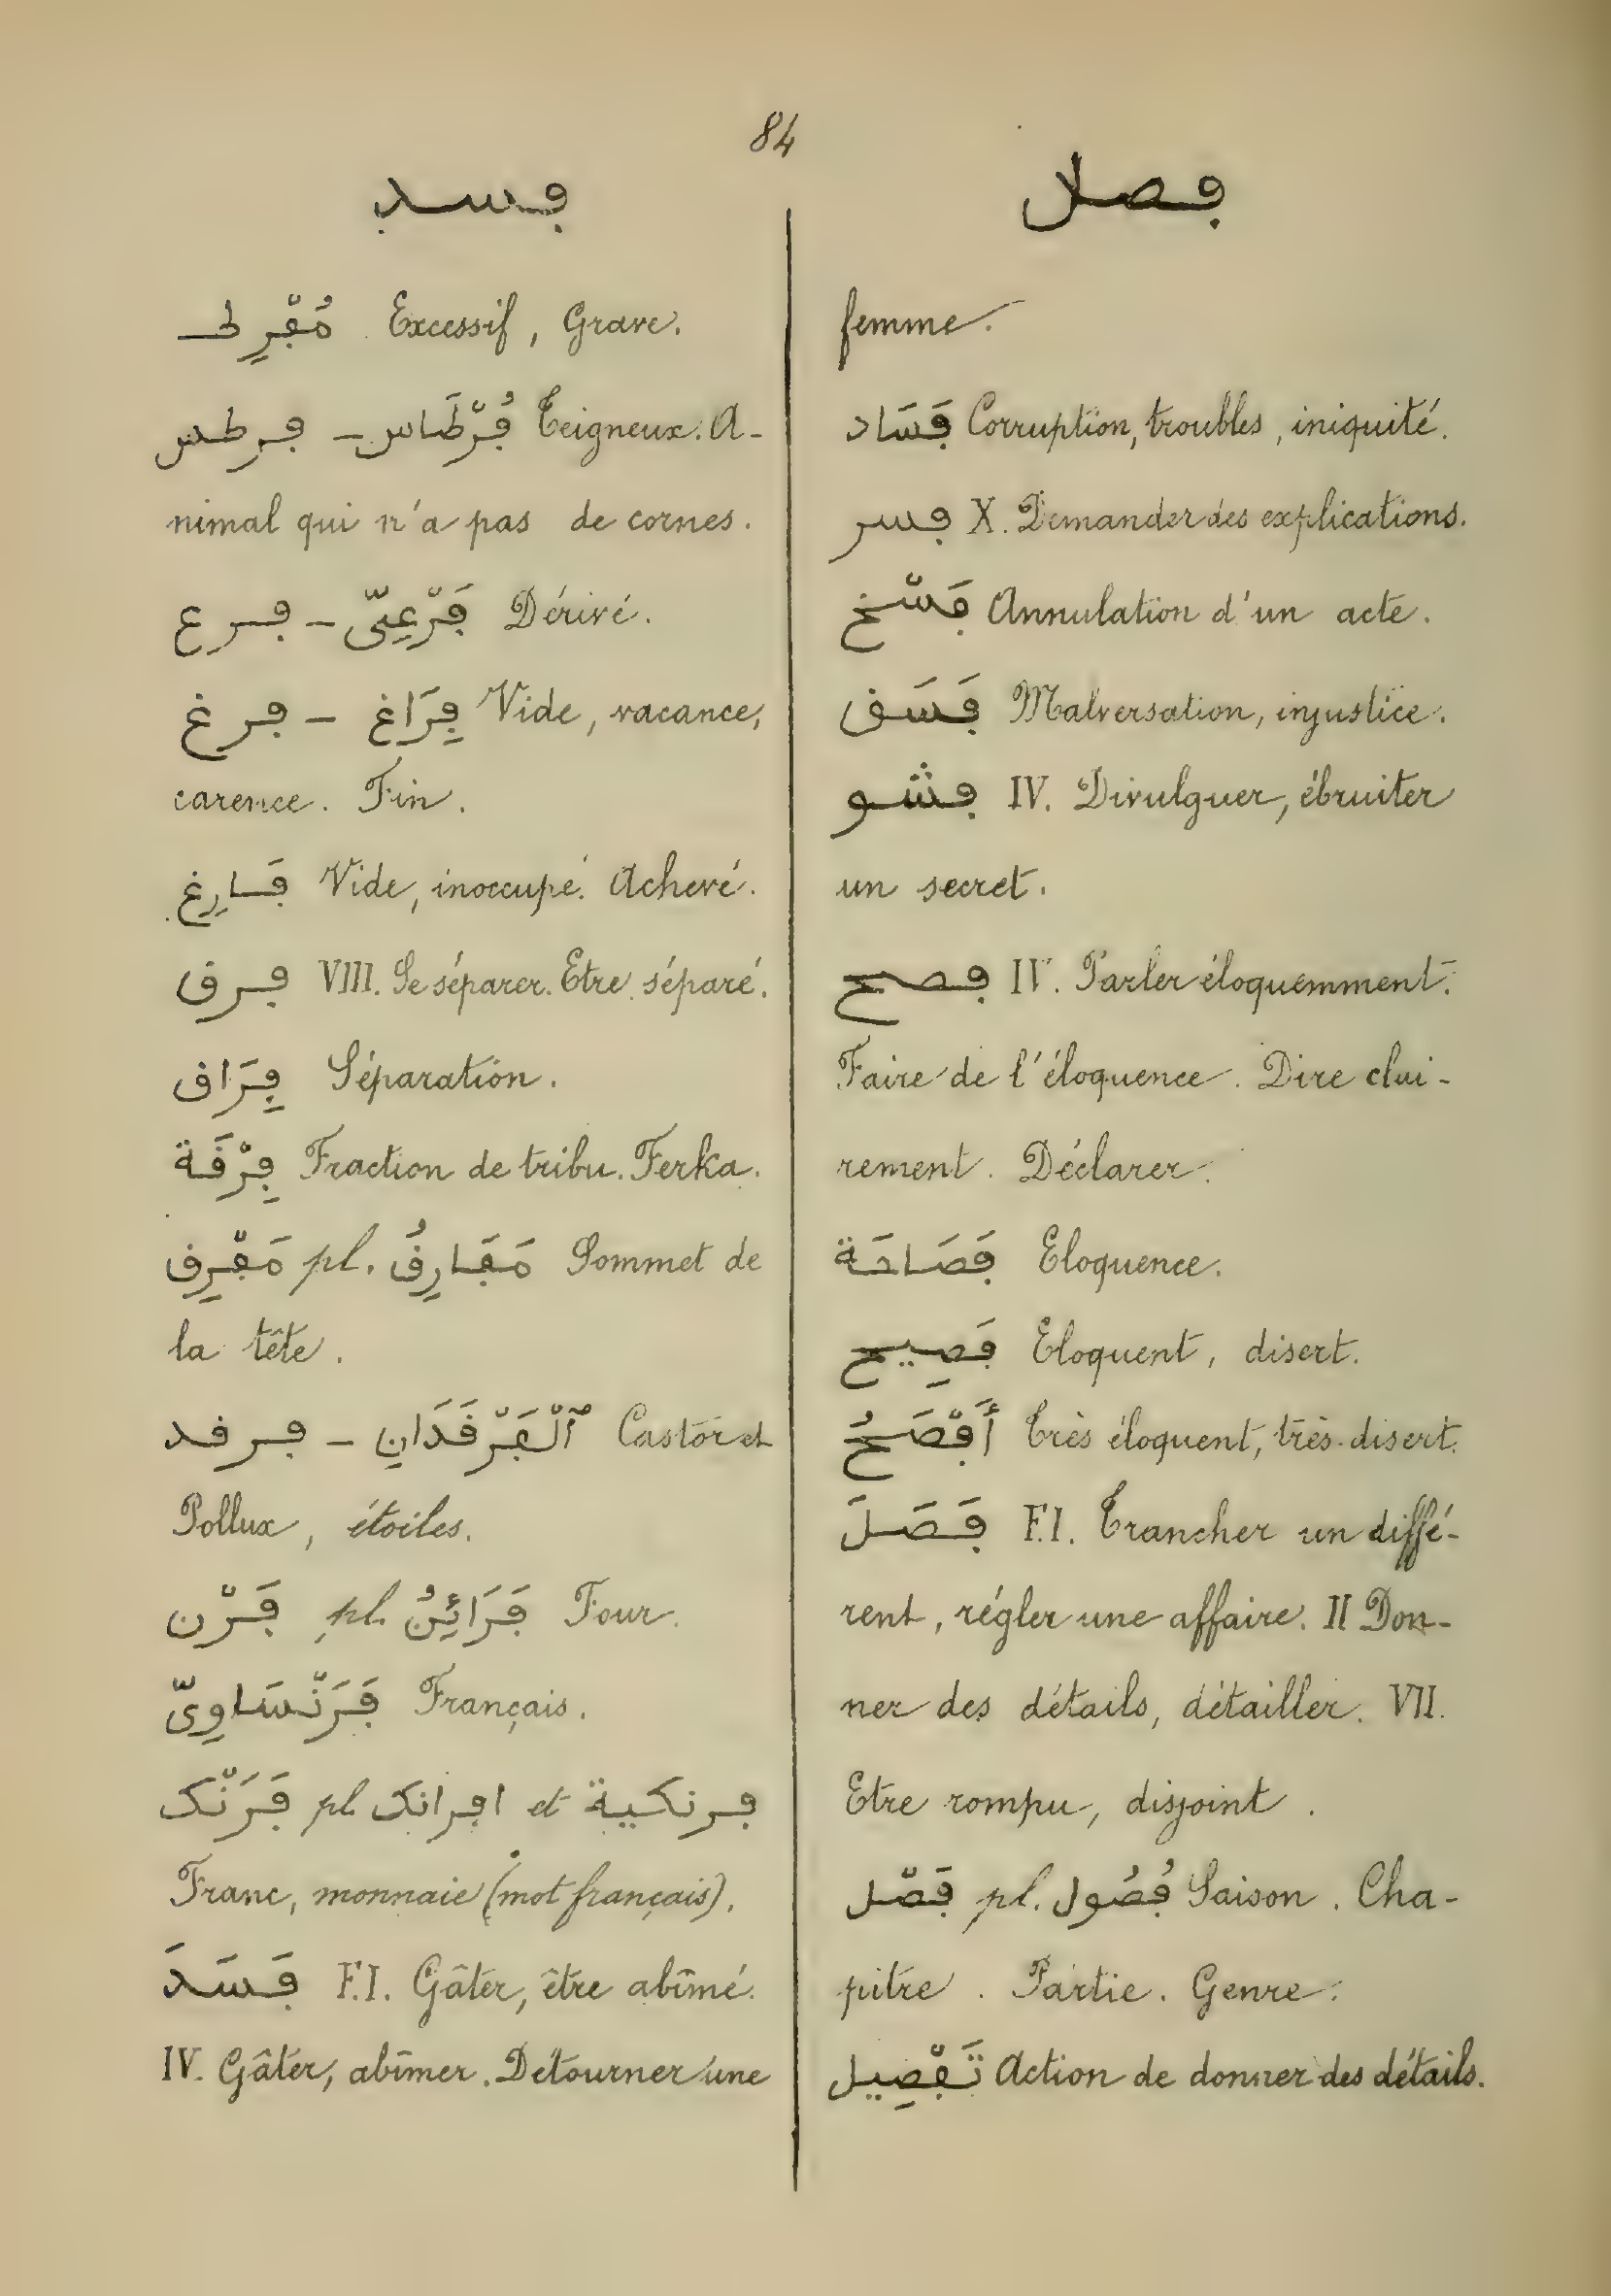 84
فسد
فصل
مُفْرِط Excessif, Grave.
فرطس – فُرْطَاس Teigneux. A-
nimal qui n'a pas de cornes.
فرع – فَرْعِىّ Dérivé.
فرغ – فِرَاغ Vide, vacance,
carence. Fin.
فَارِغ Vide, inoccupé. Achevé.
فرق VIII. Se séparer. Etre séparé.
فِرَاق Séparation.
فِرْقَة Fraction de tribu. Ferka.
مَفْرِق pl. مَفَارِقُ Sommet de
la tête.
فرقد – ٱلْفَرْقَدَانِ Castor et
Pollux, étoiles.
فَرْن pl. فَرَائِنُ Four.
فَرَنْسَاوِىّ Français.
فَرَنْك pl افرانك et فرنكية
Franc, monnaie (mot français).
فَسَدَ F.I. Gâter, être abîmé.
IV. Gâter, abîmer. Détourner une
femme.
فَسَاد Corruption, troubles, iniquité.
فسر X. Demander des explications.
فَسْخ Annulation d'un acte.
فَسَق Malversation, injustice.
فشو IV. Divulguer, ébruiter
un secret.
فصح IV. Parler éloquemment.
Faire de l'éloquence. Dire clai-
rement. Déclarer.
فَصَاحَة Eloquence.
فَصِيح Eloquent, disert.
أَفْصَحُ Très éloquent, très disert.
فَصَلَ F.I. Trancher un diffé-
rent, régler une affaire. II Don-
ner des détails, détailler. VII.
Etre rompu, disjoint.
فَصْل pl. فُصُول Saison. Cha-
pitre. Partie. Genre.
تَفْصِيل Action de donner des détails.